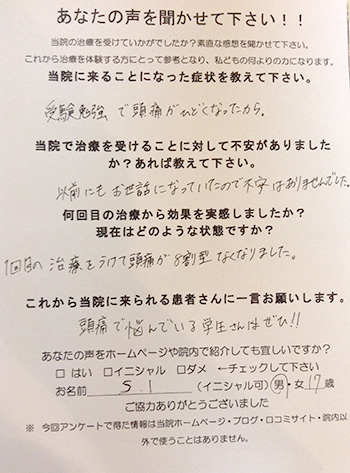 あなたの声を聞かせて下さい！！
当院の治療を受けていかがでしたか？素直な感想を聞かせて下さい。
これから治療を体験する方にとって参考となり、私どもの何よりの力になります。
当院に来ることになった症状を教えて下さい。
受験勉強で頭痛がひどくなったから。
当院で治療を受けることに対して不安がありました
か？あれば教えて下さい。
以前にもお世話になっていたので不安はありませんでした。
何回目の治療から効果を実感しましたか？
現在はどのような状態ですか？
1回目の治療をうけて頭痛が8割型なくなりました。
これから当院に来られる患者さんに一言お願いします。
頭痛で悩んでいる学生さんはぜひ!!
あなたの声をホームページや院内で紹介しても宜しいですか？
□ はい □イニシャル □ダメ ←チェックして下さい
お名前 S.I (イニシャル可) 男・女 17歳
ご協力ありがとうございました
※ 今回アンケートで得た情報は当院ホームページ・ブログ・口コミサイト・院内以
外で使うことはありません。